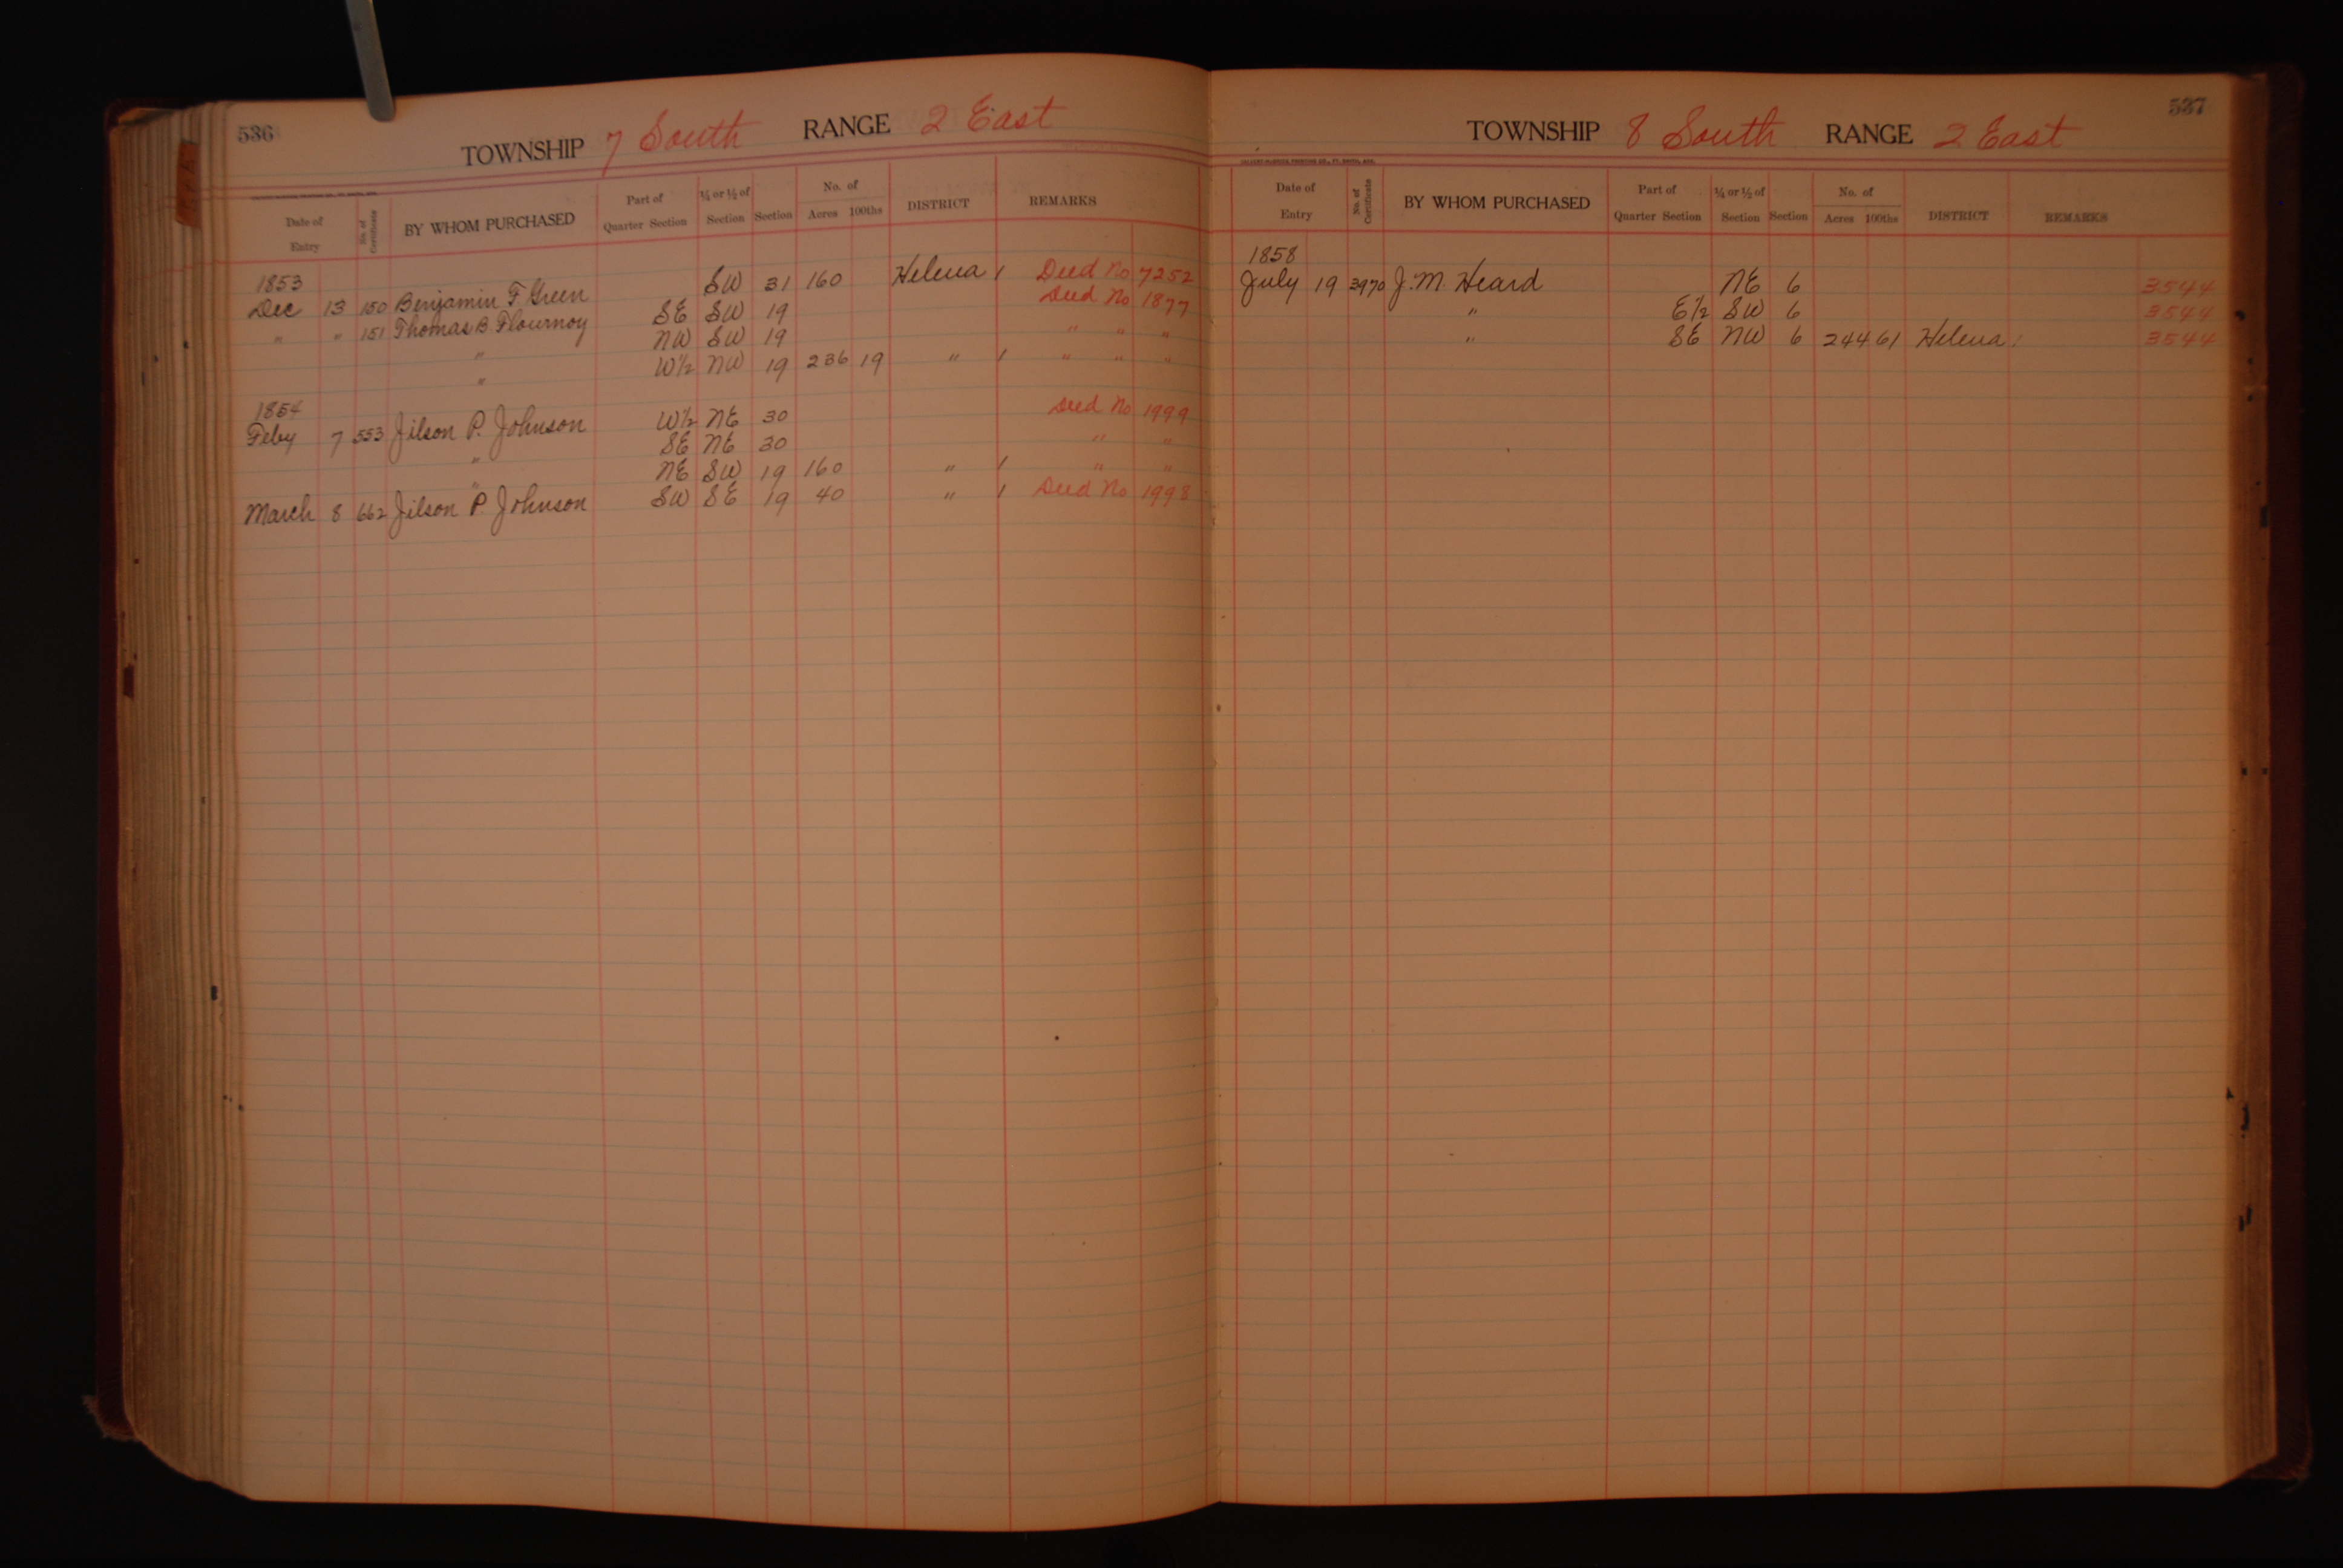 536
TOWNSHIP 7 South RANGE 2 East
Date of Entry No. of Certificate BY WHOM PURCHASED Part of Quarter Section ¼ or ½ of Section Section No. of Acres 100ths DISTRICT REMARKS
1853
Dec 13 150 Benjamin F. Green SW 31 160 Helena / Deed No 7252
" " 151 Thomas B. Flournoy SE SW 19 Deed No 1877
" NW SW 19 " " "
" W½ NW 19 236 19 " / " " "
1854
Feby 7 553 Jilson P. Johnson W½ NE 30 Deed No 1999
" SE NE 30 " "
" NE SW 19 160 " / " "
March 8 662 Jilson P. Johnson SW SE 19 40 " / Deed No 1998
537
TOWNSHIP 8 South RANGE 2 East
Date of Entry No. of Certificate BY WHOM PURCHASED Part of Quarter Section ¼ or ½ of Section Section No. of Acres 100ths DISTRICT REMARKS
1858
July 19 3970 J. M. Heard NE 6 3544
" E½ SW 6 3544
" SE NW 6 244 61 Helena / 3544